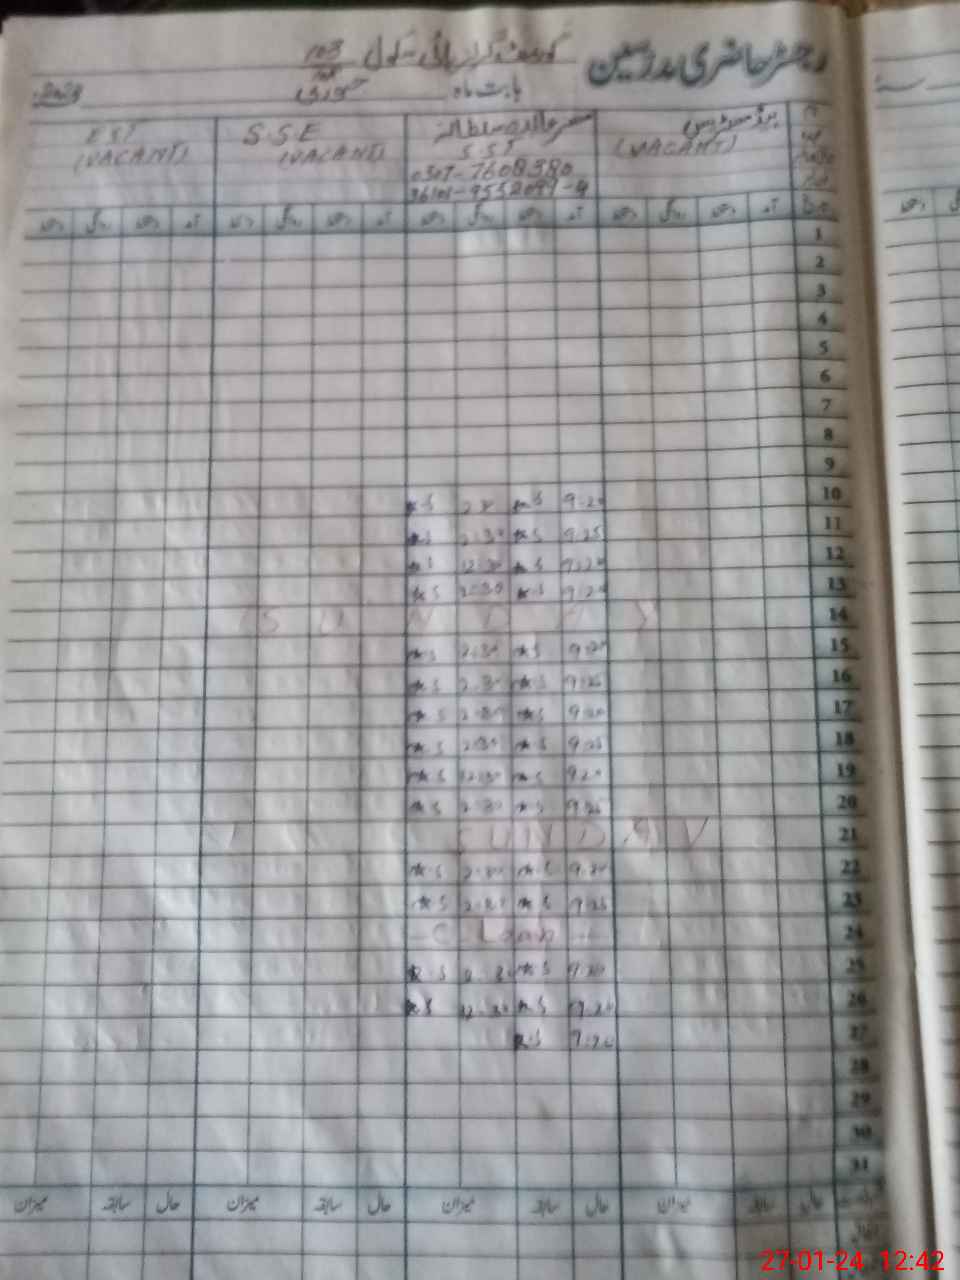 رجسٹر حاضری مدرسین گورنمنٹ گرلز ہائی سکول 103
بابت ماہ جنوری
ہیڈ مسٹریس مسز خالدہ سلطانہ S.S.E EST
(VACANT) S.ST (VACANT) (VACANT)
0307-7608380
36101-9552099-4
آمد دستخط روانگی دستخط آمد دستخط روانگی دستخط آمد دستخط روانگی دستخط آمد دستخط روانگی دستخط
1
2
3
4
5
6
7
8
9
10 9.20 K.S 2.30 K.S
11 9.25 K.S 2.30 K.S
12 9.20 K.S 12.30 K.S
13 9.20 K.S 2.30 K.S
14 SUNDAY
15 9.20 K.S 2.30 K.S
16 9.25 K.S 2.30 K.S
17 9.20 K.S 2.30 K.S
18 9.25 K.S 2.30 K.S
19 9.20 K.S 12.30 K.S
20 9.25 K.S 2.30 K.S
21 SUNDAY
22 9.20 K.S 2.30 K.S
23 9.25 K.S 2.30 K.S
24 C. Leave
25 9.20 K.S 2.30 K.S
26 9.20 K.S 12.30 K.S
27 9.20 K.S
28
29
30
31
حال سابقہ میزان حال سابقہ میزان حال سابقہ میزان حال سابقہ میزان
27-01-24 12:42